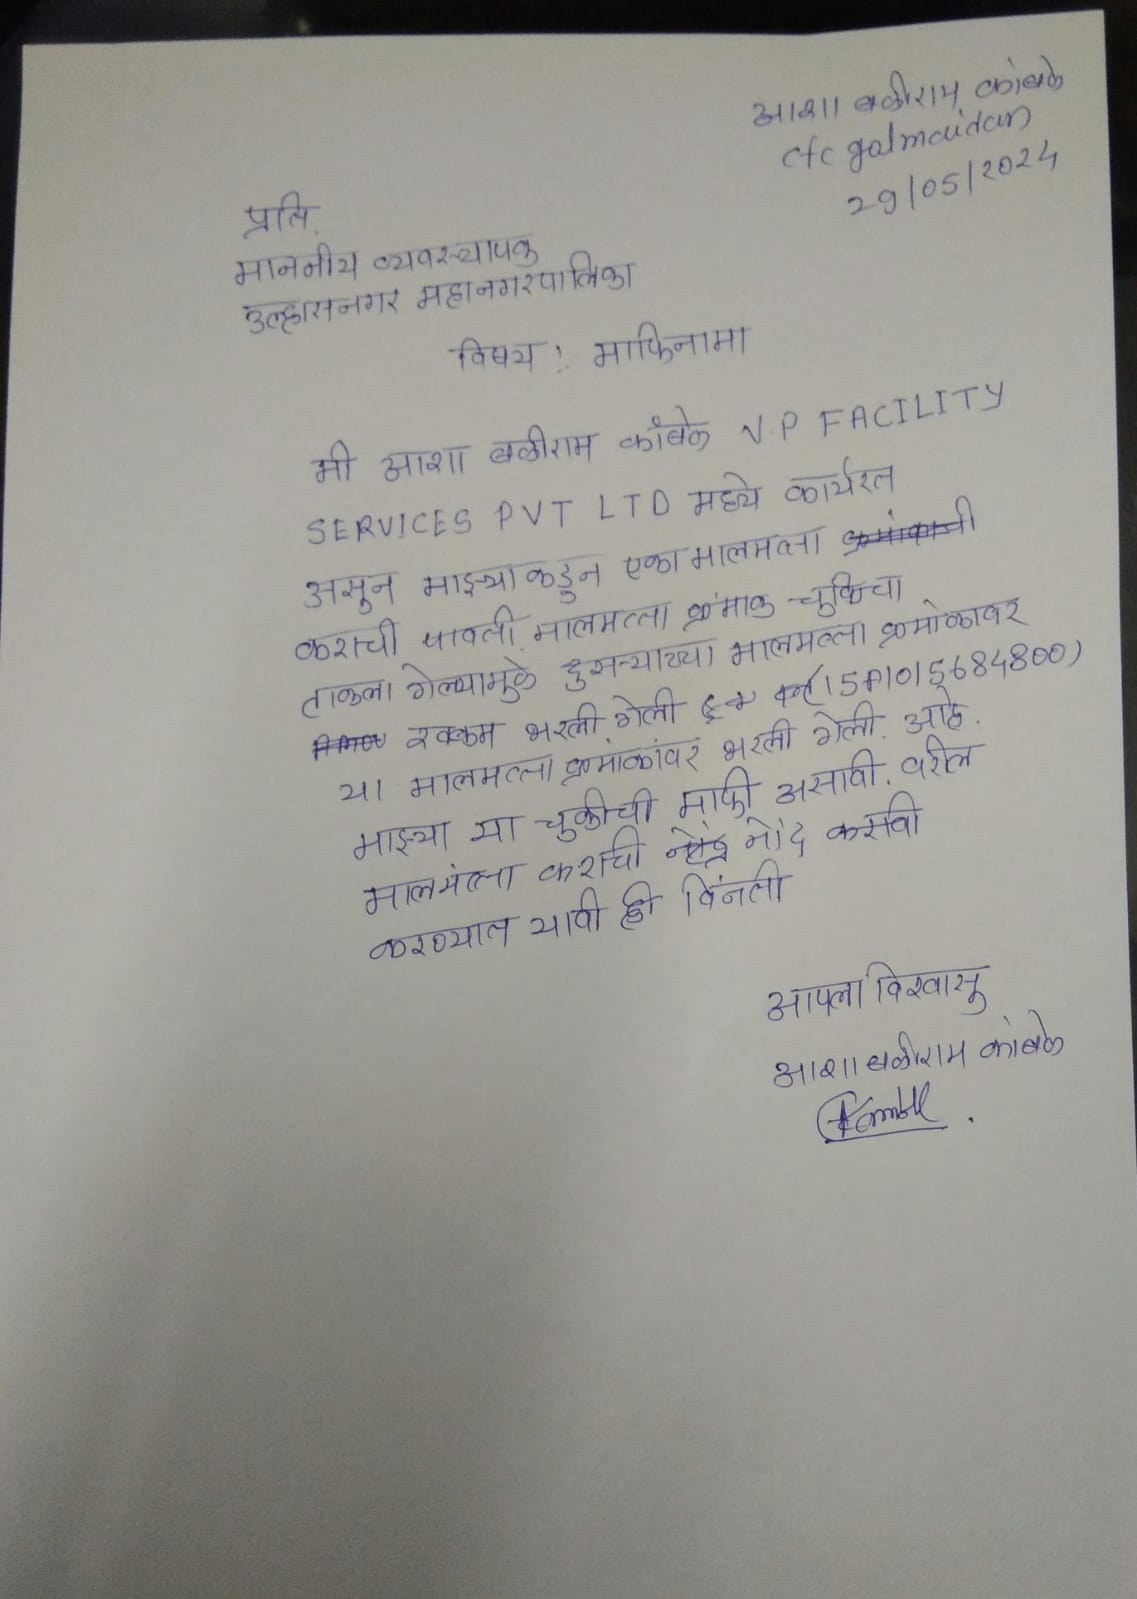 आशा बळीराम कांबळे
cfc golmaidan
29/05/2024
प्रति,
माननीय व्यवस्थापक
उल्हासनगर महानगरपालिका
विषय : माफिनामा
मी आशा बळीराम कांबळे V.P FACILITY
SERVICES PVT LTD मध्ये कार्यरत
असुन माझ्याकडुन एका मालमत्ता
कराची पावती मालमत्ता क्रंमाक चुकिचा
टाकला गेल्यामुळे दुसऱ्याच्या मालमत्ता क्रमांकावर
रक्कम भरली गेली (15A1015684800)
या मालमत्ता क्रमांकांवर भरली गेली. आहे.
माझ्या या चुकीची माफी असावी. वरील
मालमंत्ता कराची नोंद करावी
करण्यात यावी ही विंनती
आपला विश्वासु
आशा बळीराम कांबळे